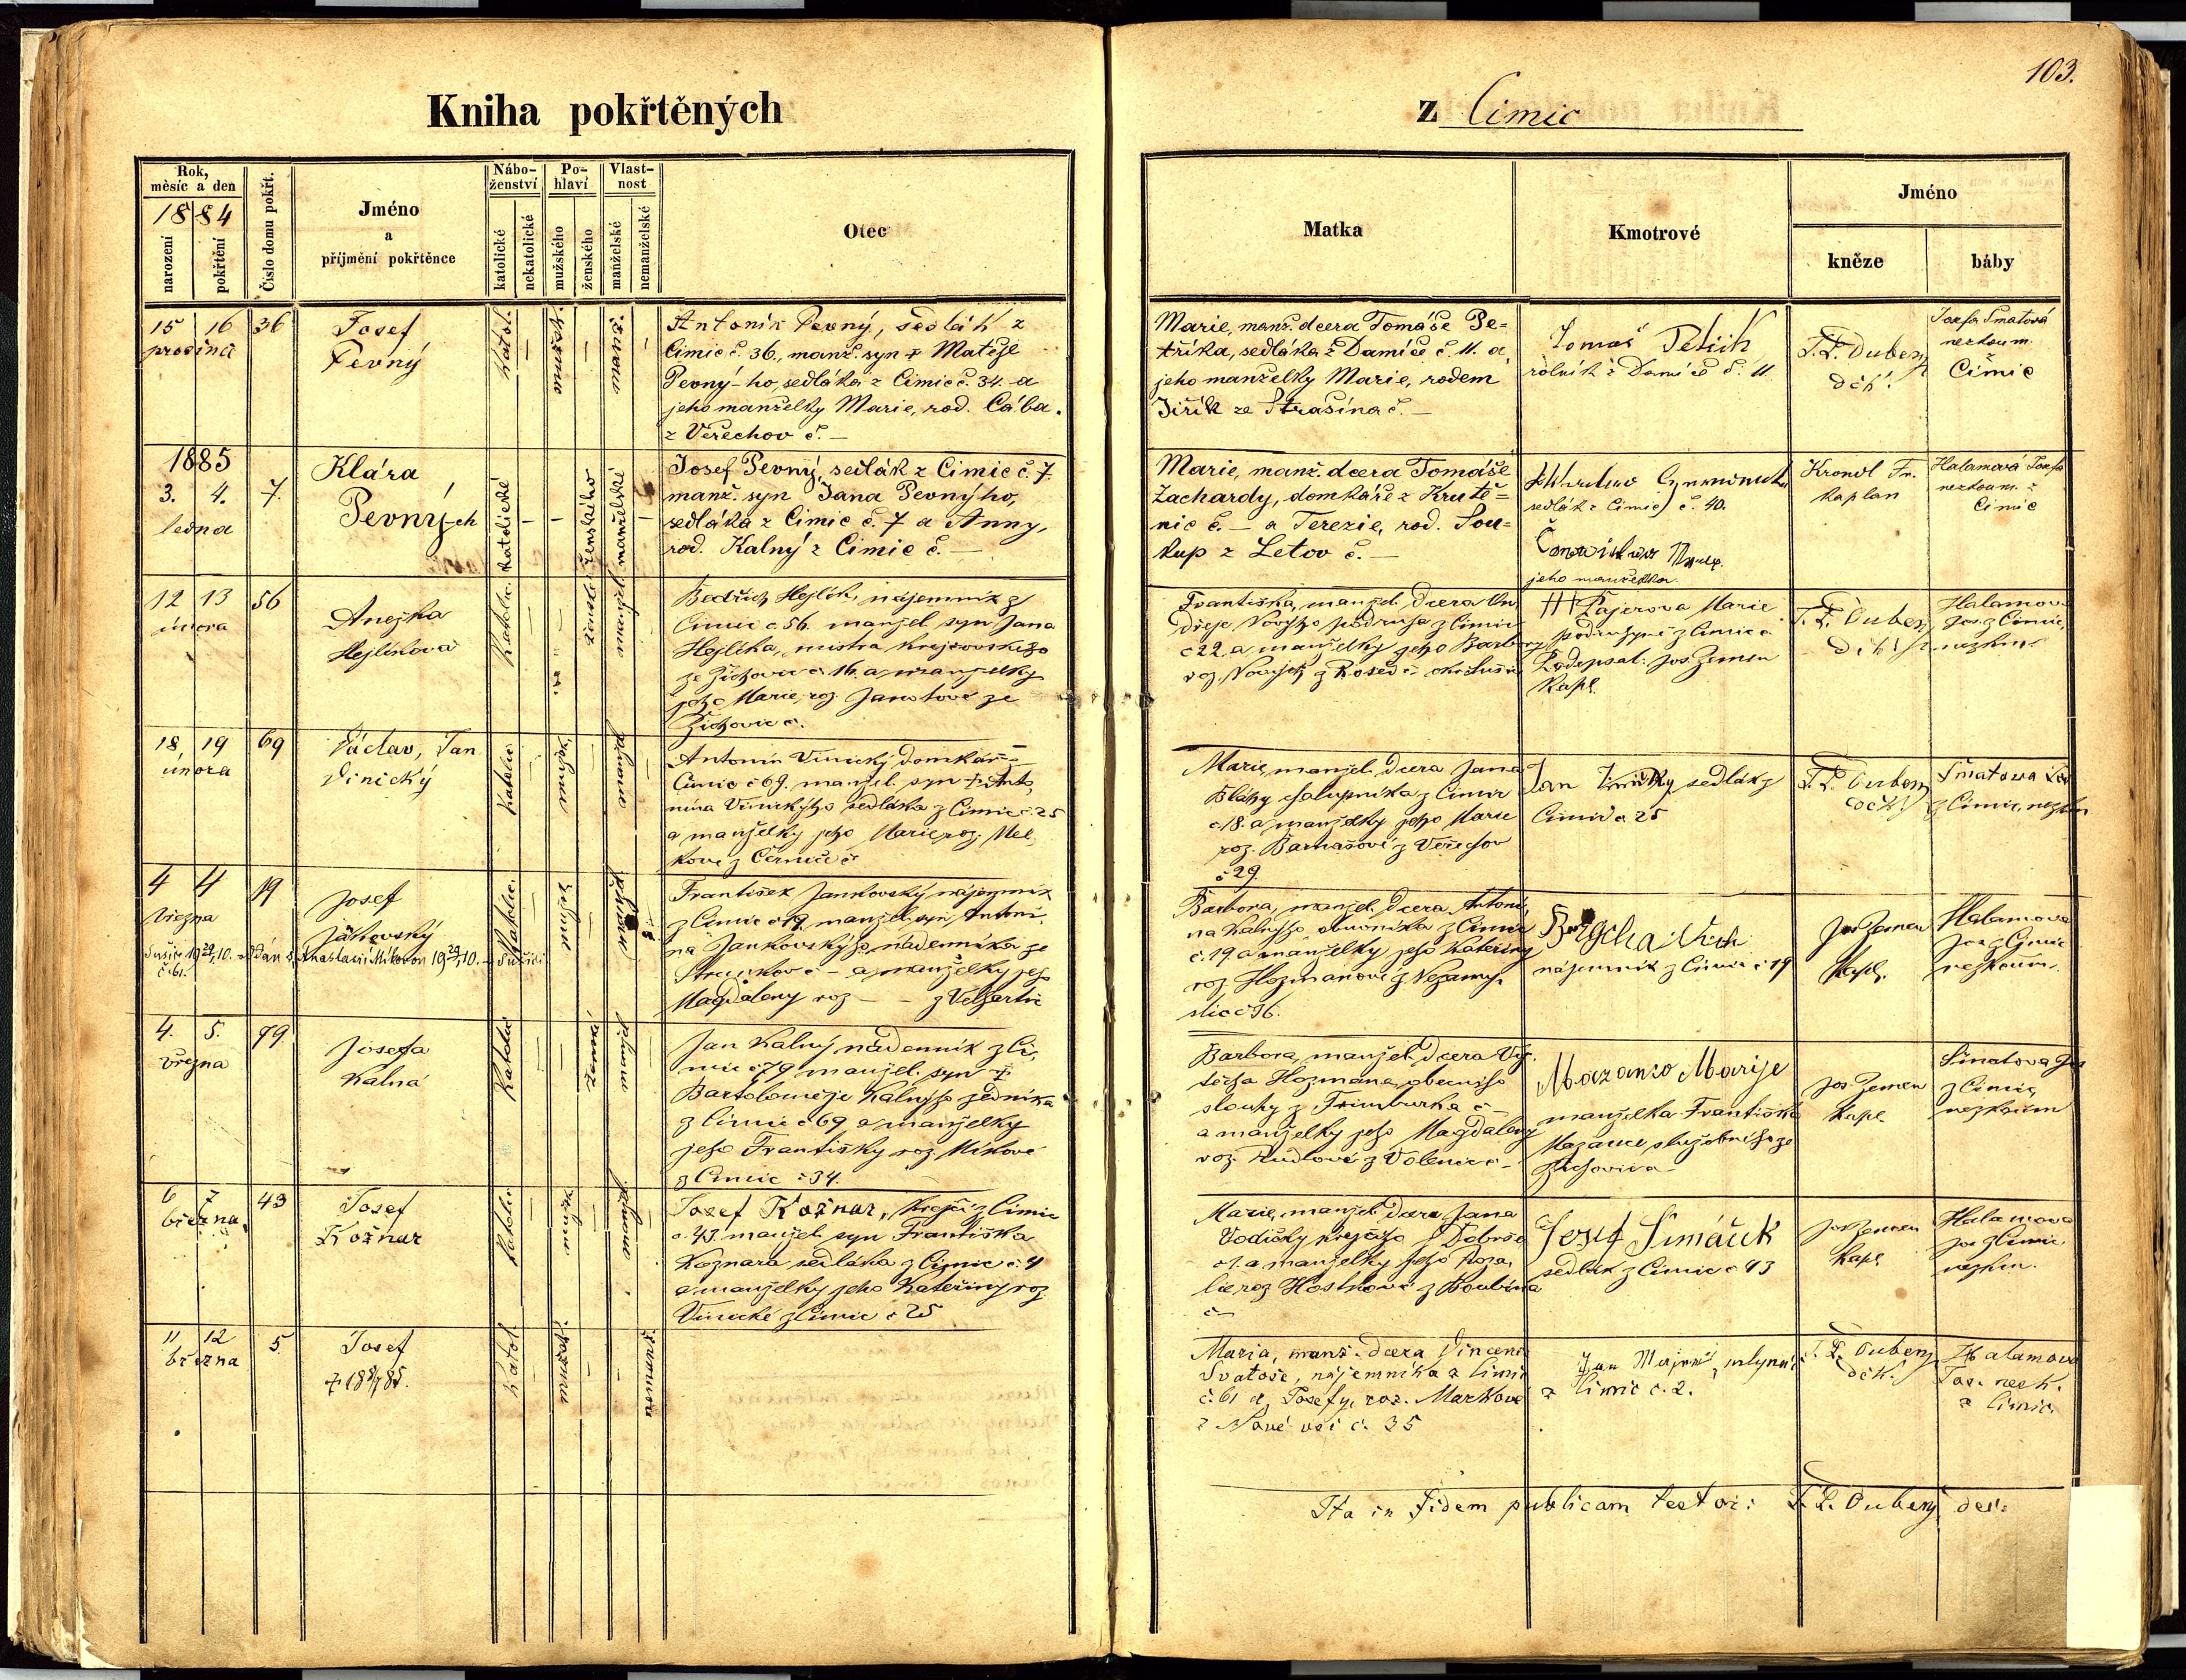 103.
Kniha pokřtěných
z Cimic
Rok,
měsíc a den
1884
narození
pokřtění
Číslo domu pokřt.
Jméno
a
příjmění pokřtěnce
Nábo-
ženství
katolické
nekatolické
Po-
hlaví
mužského
ženského
Vlast-
nost
manželské
nemanželské
Otec
Matka
Kmotrové
Jméno
kněze
báby
15 16 36
prosince
Josef
Pevný
Katol.
Antonín Pevný, sedlák z
Cimic č. 36., manž. syn † Matěje
Pevný-ho, sedláka z Cimic č. 34. a
jeho manželky Marie, rod. Cába.
z Veřechov č. —
Marie, manž. dcera Tomáše Pe=
tříka, sedláka z Damíče č. 11. a
jeho manželky Marie, rodem
Jiřík ze Strašína č. —
Tomáš Petřík
rolník z Damíče č. 11
F. L. Dubený
děk.
Josefa Šmatová
nezkoum.
z
Cimic
1885
3. 4. 7.
ledna
Klára
Pevný-ch
katolické
ženského
manželské
Josef Pevný, sedlák z Cimic č. 7.
manž. syn Jana Pevnýho,
sedláka z Cimic č. 7 a Anny,
rod. Kalný z Cimic č. —
Marie, manž. dcera Tomáše
Zachardy, domkáře z Krutě=
nic č. — a Terezie, rod. Sou=
kup z Letov č. —
sedlák z Cimic č. 40.
jeho manželka.
Krondl Fr.
kaplan
Halamová Josefa
nezkoum. z
Cimic
12 13 56
února
Anežka
Hejlíková
Katolic.
ženské
manžel
Bedřich Hejlík, nájemník z
Cimic č 56. manžel. syn Jana
Hejlíka, mistra krejčovského
ze Žichovic č. 16. a manželky
jeho Marie, roz. Janotové ze
Žichovic č.
Františka, manžel. dcera On
dřeje Novýho podruha z Cimic
č 22. a manželky jeho Barbory
roz.
††† Pajerova Marie
podruhyně z Cimic č
Podepsal: Jos. Zeman
Kapl.
F. L. Dubený
děk
Halamová
Jos. z Cimic,
nezkm.
18 19 69
února
Václav, Jan
Vinický
Katolic
Antonín Vinický domkář z
Cimic č 69. manžel. syn † Anto
nína Vinickýho sedláka z Cimic č. 25
a manželky jeho Marie roz. Mel
kové z Černíče č
Marie, manžel. dcera Jana
Bláhy chalupníka z Cimic
č. 18. a manželky jeho Marie
roz. Barnášové z Veřechov
č 29.
Jan Vinický sedlák z
Cimic č 25
F. L. Dubený
děk
Šmatova
z Cimic, nezkm
4 4 19
března
Josef
Jankovský
Katolic.
František Jankovský nájemník
z Cimic č 19. manžel. syn Antoní
na Jankovskýho nádenníka ze
a manželky jeho
Magdaleny roz — z Velhartic
Barbora, manžel. dcera Antoní
na Kalnýho z Cimic
č. 19 a manželky jeho Kateřiny
roz. Hozmanové z Nezamy
slic č 36.
nájemník z Cimic č 19
Jos Zeman
Kapl.
Halamova
Jos z Cimic
nezkoum.
4. 5. 79.
března
Josefa
Kalná
Katolic
ženské
Jan Kalný nádenník z Ci
mic č 79 manžel. syn †
Bartoloměje Kalnýho zedníka
z Cimic č 69 a manželky
jeho Františky roz Míkové
z Cimic č 34.
Barbora, manžel. dcera Voj
těcha Hozmana, obecního
slouhy z č —
a manželky jeho Magdaleny
roz. Rudlové z Volenic č —
Mazanso Marije
manželka Františka
Mazance služebního ze
Žichovic č —
Jos. Zeman
Kapl
Šmatova Jos
z Cimic,
nezkoum
6 7 43
března
Josef
Kožnar
Katolic
Josef Kožnar, krejčí z Cimic
č. 43. manžel. syn Františka
Koznara sedláka z Cimic č. 4
a manželky jeho Kateřiny roz
Vinické z Cimic č 25
Marie, manžel. dcera Jana
Vodičky krejčího z Dobrše
č 1. a manželky jeho Roza
lie roz Hostkové z Boubína
č —
Josef Šimáček
sedlák z Cimic č 43
Jos Zeman
Kapl
Halamova
Jos z Cimic
nezkm.
11 12 5.
března
Josef
Katol.
Maria, manž. dcera Vincence
Svatoše, nájemníka z Cimic
č. 61 a Josefy, roz. Markové
z Nové vsi č. 35
z Cimic č. 2.
F. L. Dubený
děk.
Halamova
Jos. nezk.
z Cimic
Ita in fidem publicam testor: F. L. Dubený děk.